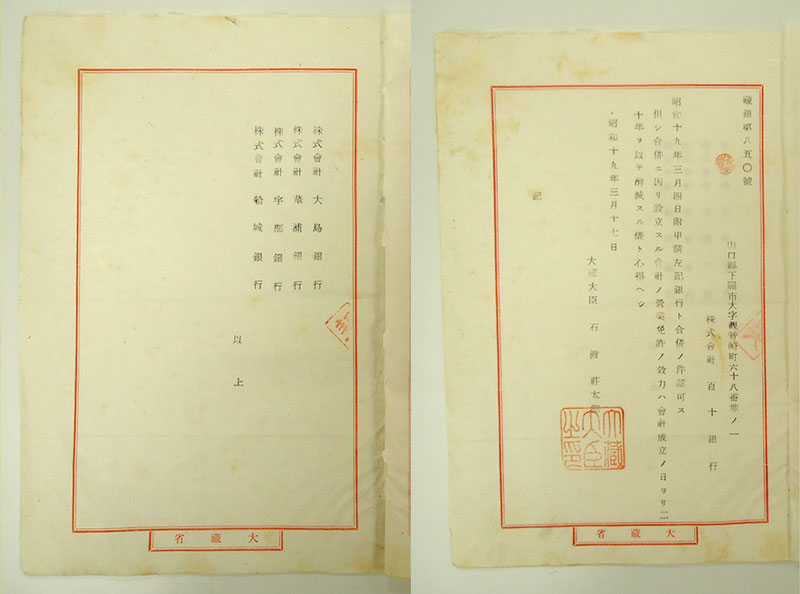 藏銀第八五〇號
山口縣下關市大字觀音崎町六十八番地ノ一
株式會社 百十銀行
昭和十九年三月四日附申請左記銀行ト合併ノ件認可ス
但シ合併ニ因リ設立スル會社ノ營業免許ノ效力ハ會社成立ノ日ヨリ二
十年ヲ以テ消滅スル儀ト心得ヘシ
昭和十九年三月十七日
大藏大臣 石渡莊太郎
大藏大臣之印
記
大藏省
株式會社 大島銀行
株式會社 華浦銀行
株式會社 宇部銀行
株式會社 船城銀行
以上
大藏省